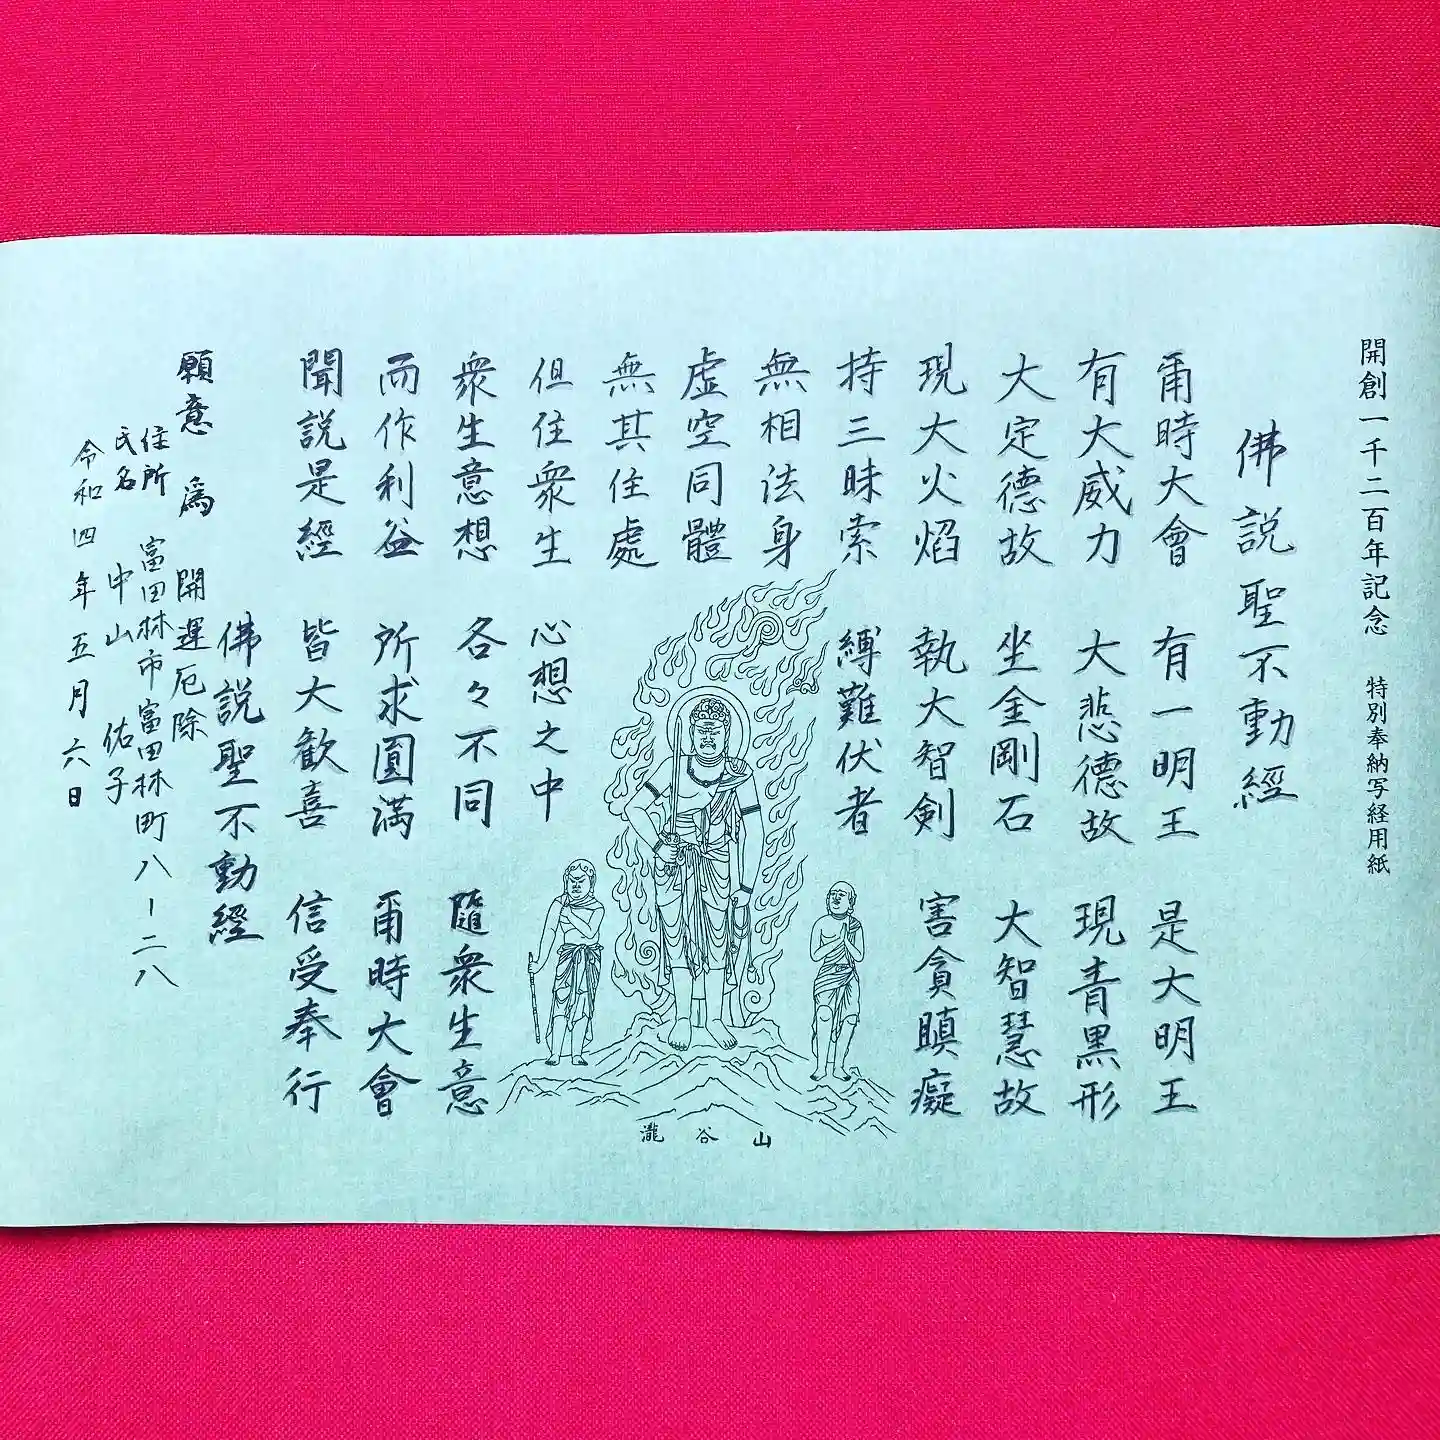 開創一千二百年記念 特別奉納写経用紙
佛説聖不動經
爾時大會 有一明王 是大明王
有大威力 大悲德故 現青黒形
大定德故 坐金剛石 大智慧故
現大火焰 執大智剣 害貪瞋癡
持三昧索 縛難伏者
無相法身
虚空同體
無其住處
但住衆生 心想之中
衆生意想 各々不同 隨衆生意
而作利益 所求圓満 爾時大會
聞説是經 皆大歓喜 信受奉行
佛説聖不動經
願意 為 開運厄除
住所 富田林市富田林町八ー二八
氏名 中山 佑子
令和四年五月六日
瀧谷山